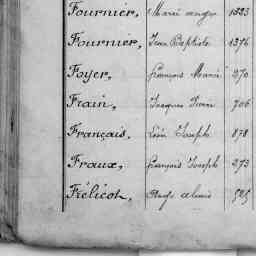 Fournier, Marie ange 1823
Fournier, Jean Baptiste 1376
Foyer, François Marie 970
Frain, Jacques Pierre 706
Français, Léon Joseph 878
Fraux, François Joseph 273
Frélicot, 525